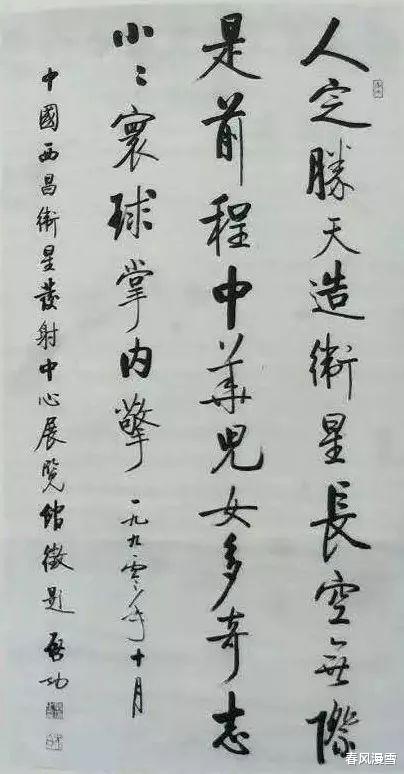 人定勝天造衛星長空無際
是前程中華兒女多奇志
小〻寰球掌内擎 一九九零年十月
中國西昌衛星發射中心展覽館徵題 啓功
春风漫雪